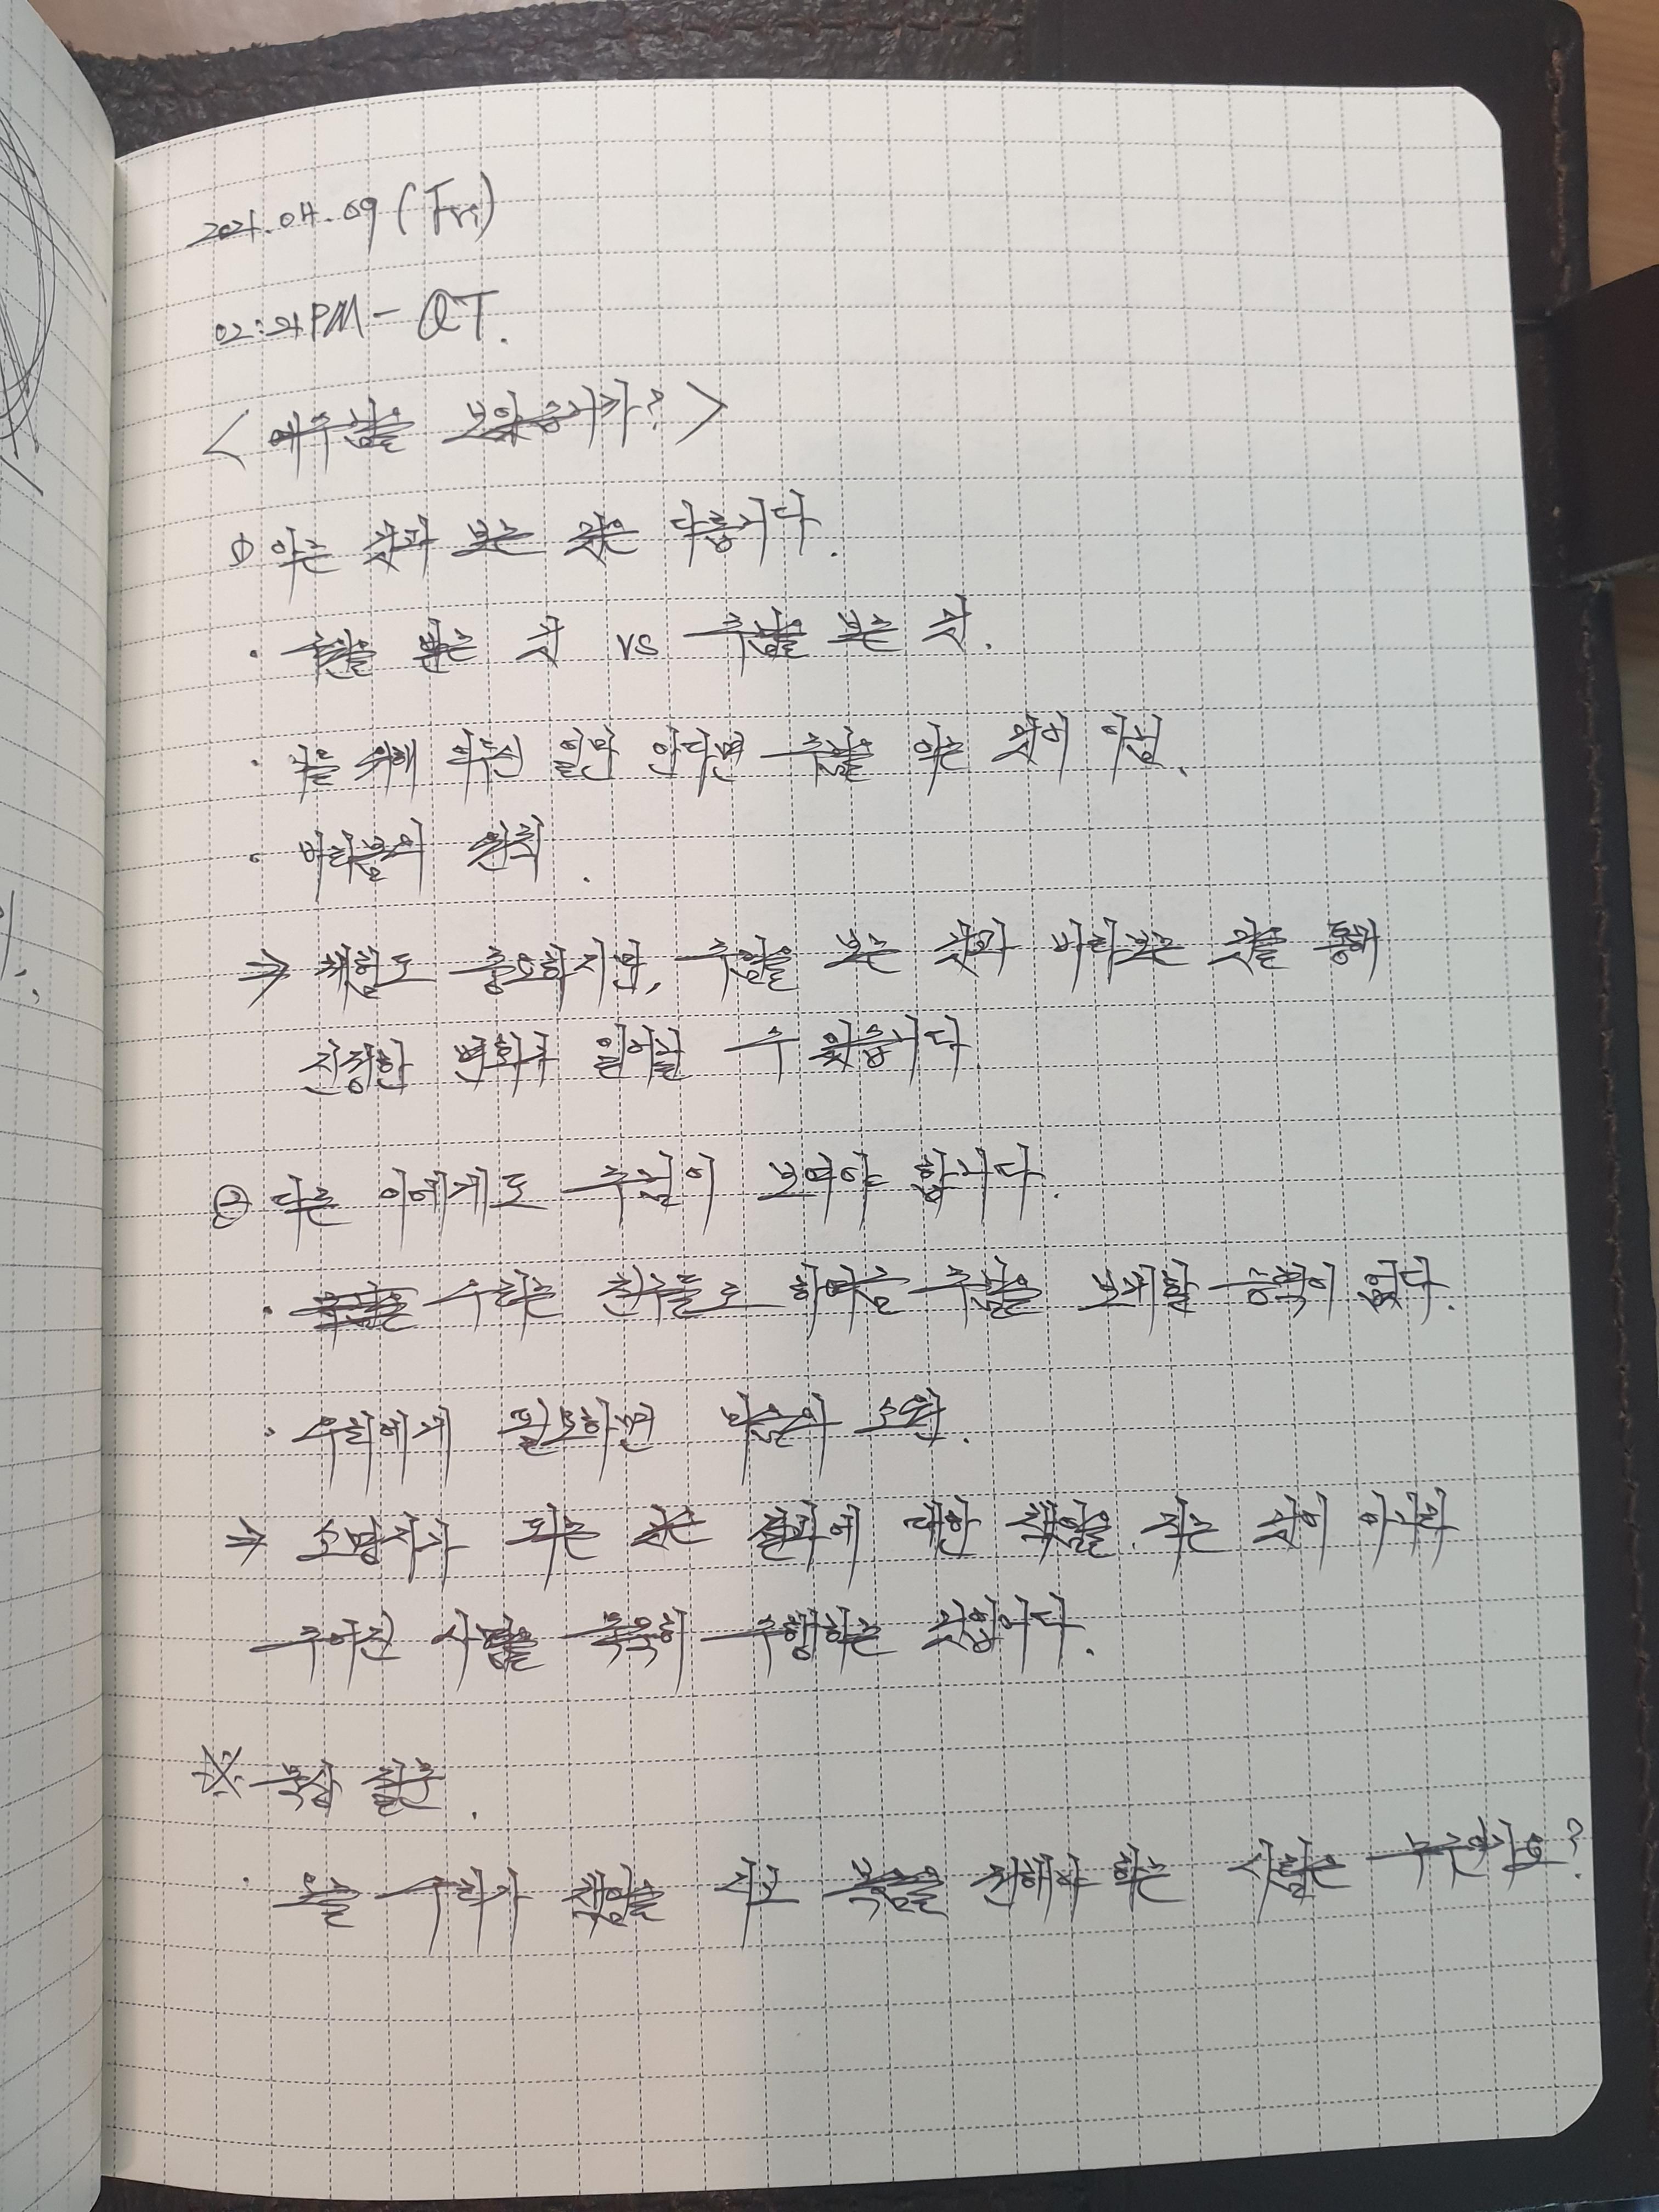 2021.04.09 (Fri)
02:21 PM - QT.
< 예수님을 보았는가? >
① 아는 것과 보는 것은 다릅니다.
· 주변을 보는 것 vs 주님을 보는 것.
· 나를 위해 하신 일만 안다면 주님을 아는 것이 아님.
· 바라봄의 원칙.
⇒ 체험도 중요하지만, 주님을 보는 것과 바라보는 것을 통해
진정한 변화가 일어날 수 있습니다
② 다른 이에게도 주님이 보여야 합니다.
· 우리는 친구들로 하여금 주님을 보게할 능력이 없다.
· 우리에게 필요하면 믿음의 소원.
⇒ 소명자가 되는 것은 결과에 대한 책임을 지는 것이 아니라
주어진 사명을 묵묵히 수행하는 것입니다.
※ 묵상 질문.
· 오늘 우리가 책임을 지고 복음을 전해야 하는 사람은 누구인가요?